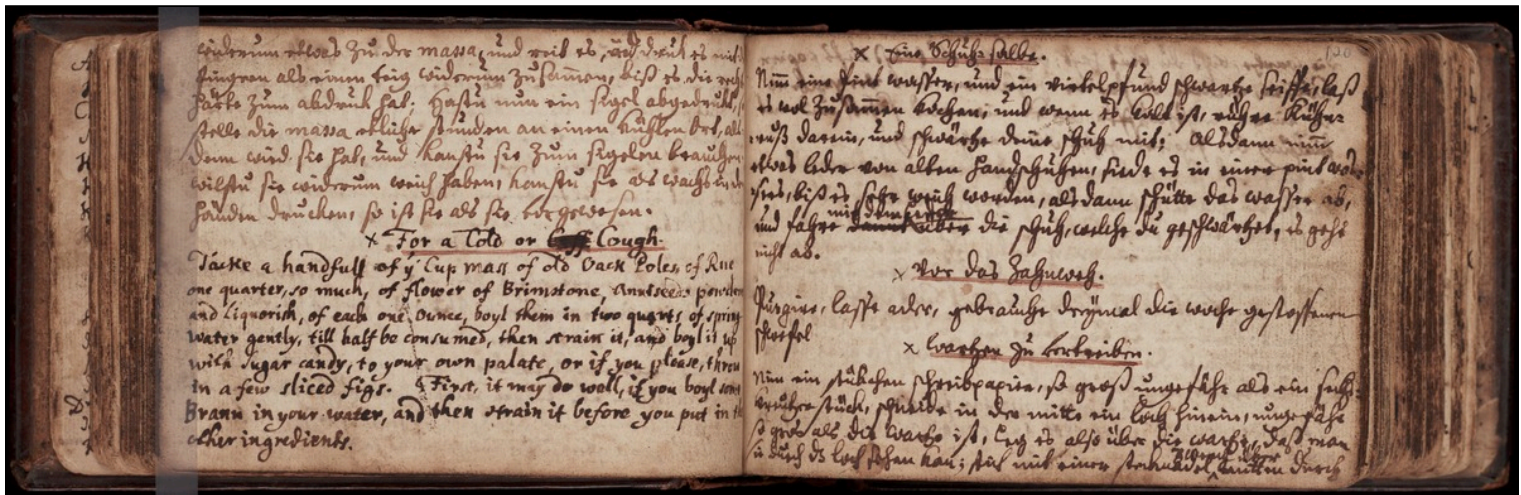 widerum etwas zu der massa, und reib es, und druk es mit
fingren als einen teig widerum zusamen, biß es die rech
härte zum abdruk hat. Hastu nun ein sigel abgedrukt,
stelle die massa etliche stunden an einen kühlen Ort, als
dann wird sie hart, und kanstu sie zum sigelen brauchen
wilstu sie widerum weich haben, kanstu sie als wachs in de
händen drucken, so ist sie als sie vor gewesen.
× For a Cold or Cough.
Tacke a handfull of yͤ Cup moss of old Oack Poles, of Rue
one quarter, so much, of flower of Brimstone, Annisseeds powder
and Liquorish, of each one Ounce, boyl them in two quarts of spring
water gently, till half be consumed, then strain it, and boyl it up
with sugar candy, to your own palate, or if you please, throu
in a few sliced figs. First, it may do well, if you boyl some
Brann in your water, and then strain it before you put in th
other ingredients.
120
× Eine Schuh-salbe.
Nim eine pint wasser, und ein viertelpfund schwartze seiffe, laß
es wol zusamen kochen, und wenn es kalt ist, rühre Kühn-
ruß darein, und schwärtze deine schuh mit; Alsdann nim
etwas leder von alten handschuhen, siede es in einer pint was-
sers, biß es sehr weich worden, alsdann schütte das wasser ab,
und fahre über die schuh, welche du geschwärtzet, es geht
nicht ab.
× Vor das Zahnweh.
Purgire, lasse ader, gebrauche dreymal die woche gestossenen
schwefel
× Wartzen zu vertreiben.
Nim ein stükchen schreibpapier, so groß ungefähr als ein sechs-
kreutzer stück, schneide in der mitte ein loch hinein, ungefähr
so groß als die wartze ist, leg es also über die wartze, daß man
sie durch ds loch sehen kan; stich mit einer stecknadel mitten durch